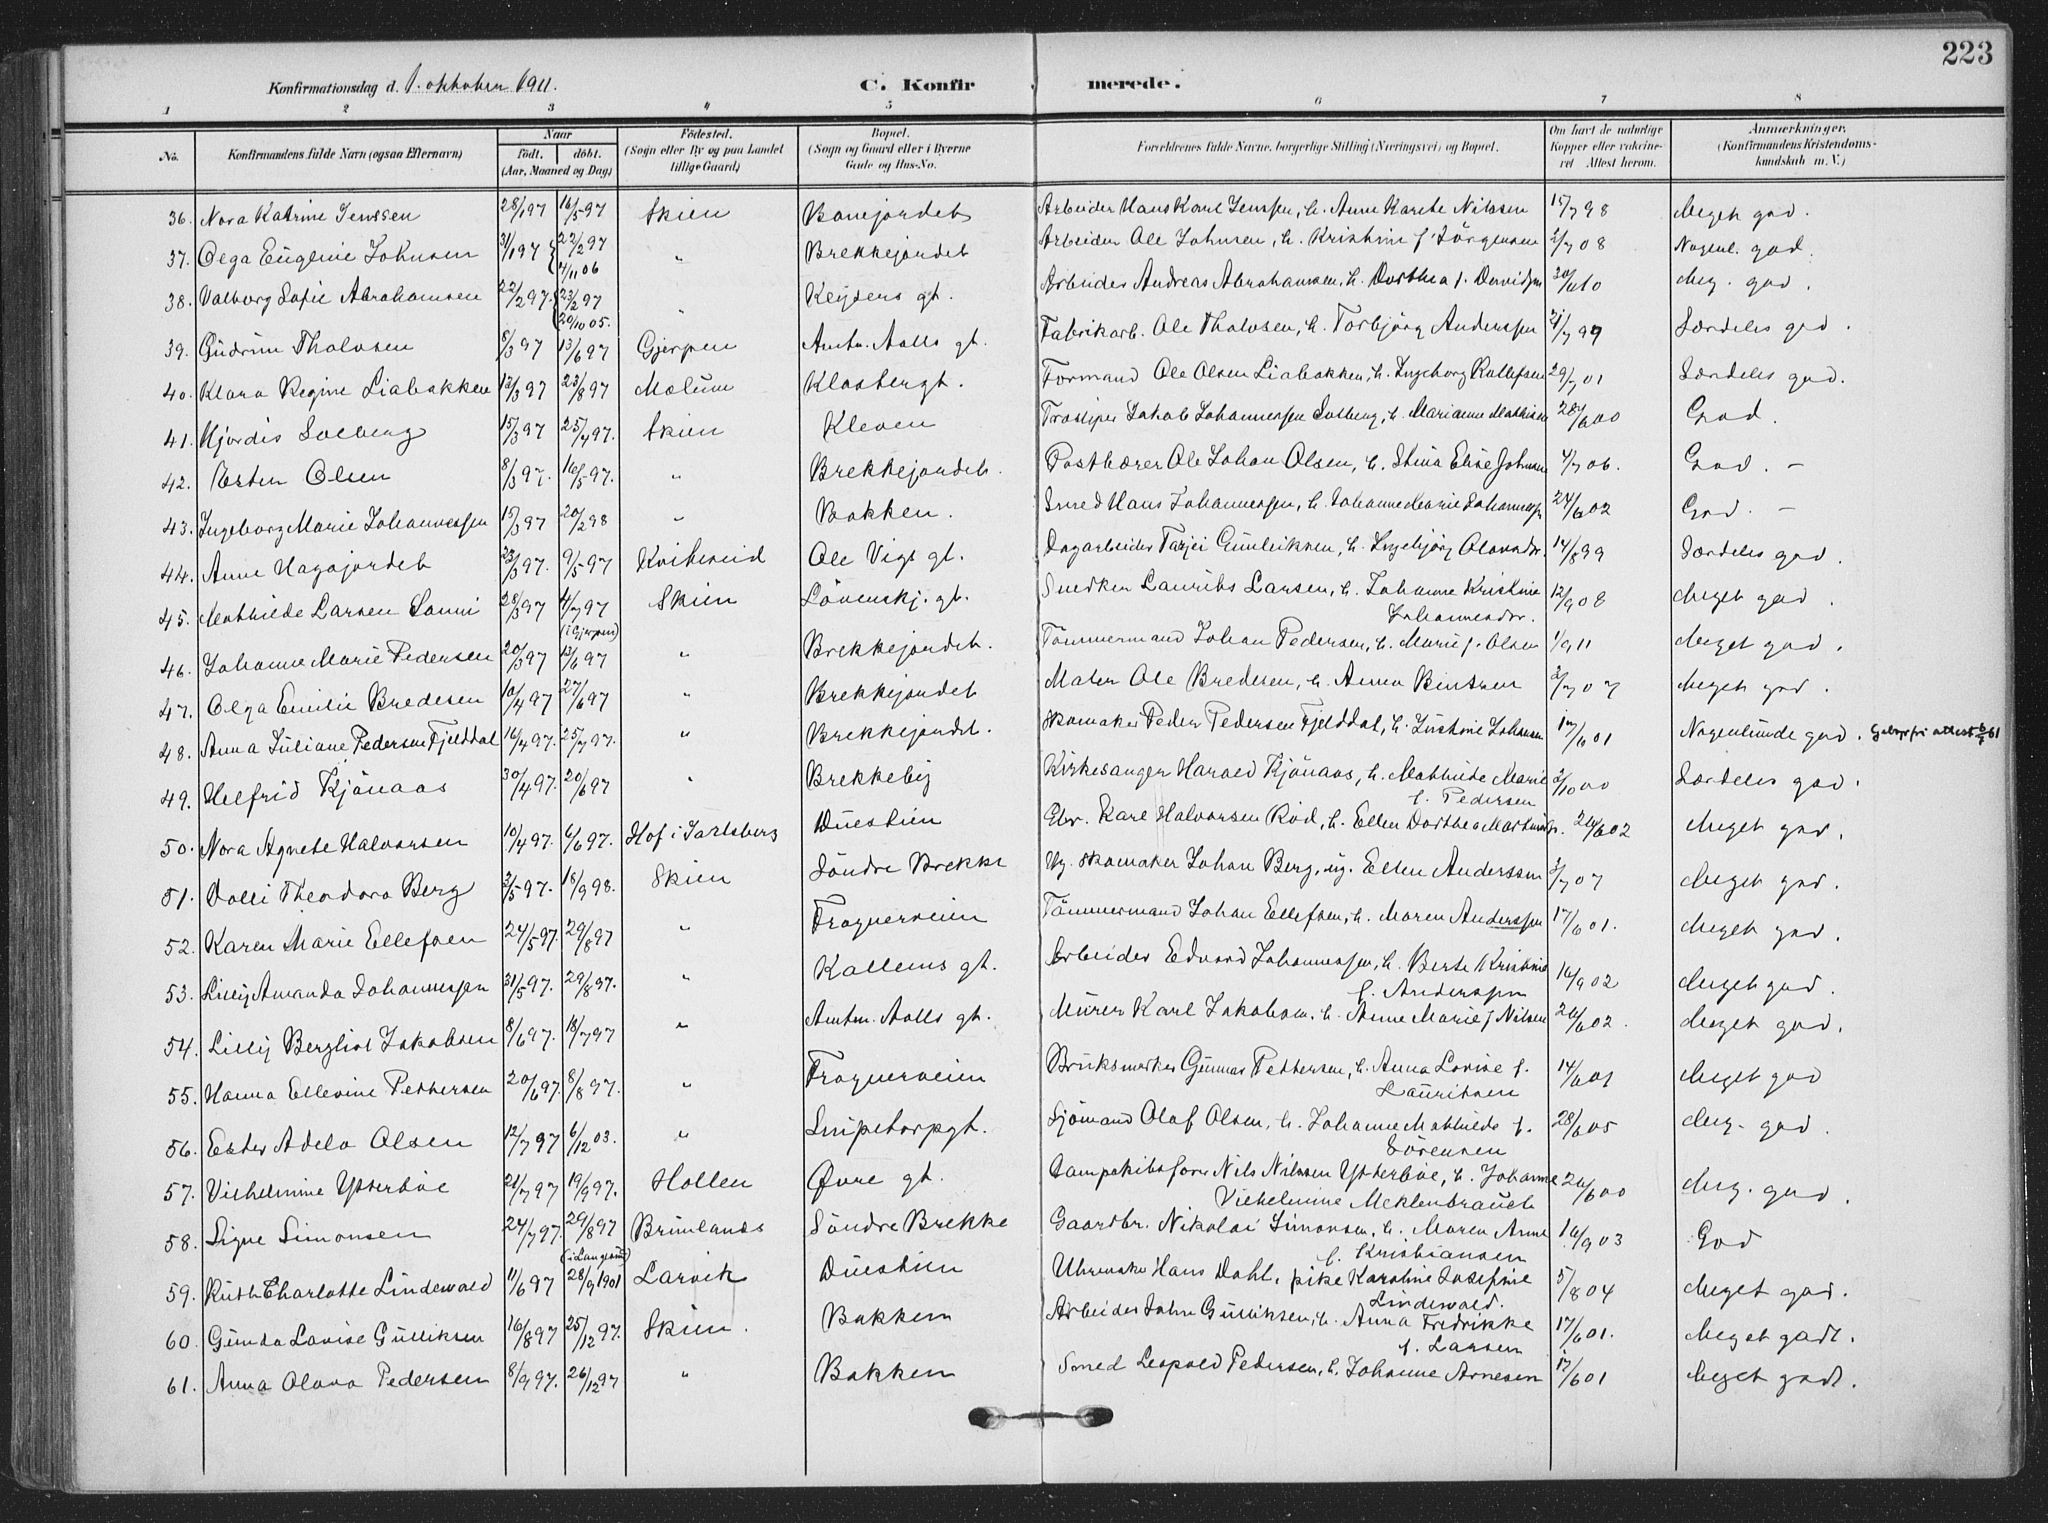 223
Konfirmationsdag d. 1. oktober 1911. C. Konfirmerede.
1 2 3 4 5 6 7 8
No. Konfirmandens fulde Navn (ogsaa Efternavn) Naar født. døbt. (Aar, Maaned og Dag) Fødested. (Sogn eller By og paa Landet tillige Gaard) Bopæl. (Sogn og Gaard eller i Byerne Gade og Hus-No. Forældrenes fulde Navne, borgerlige Stilling (Næringsvei) og Bopæl. Om havt de naturlige Kopper eller vakcineret Attest herom. Anmærkninger. (Konfirmandens Kristendomskundskab m. V.)
36. Nora Katrine Jenssen 28/1 97 16/5 97 Skien Banejordet Arbeider Hans Karl Jenssen, h. Anne Karete Nilssen 15/7 98 Meget god.
37. Olga Eugenie Johnsen 31/1 97 22/2 97 4/11 06 " Brekkejordet Arbeider Ole Johnsen, h. Kristine f. Jörgensen 2/7 08 Nogenl. god.
38. Valborg Sofie Abrahamsen 22/2 97. 23/2 97 20/10 05. " Keysers gt. Arbeider Andreas Abrahamsen, h. Dorthea f. Davidsen 30/6 10 Meg. god.
39. Gudrun Tholvsen 8/3 97 13/6 97 Gjerpen Amtm. Aalls gt. Fabrikarb. Ole Tholvsen, h. Torbjörg Anderssen 21/7 99 Særdeles god.
40. Klara Regine Liabakken 12/3 97 23/8 97 Mælum Klostergt. Formand Ole Olsen Liabakken, h. Ingeborg Rollefsen 29/7 01 Særdeles god.
41. Hjördis Solberg 15/3 97 25/4 97. Skien Kleven Jakob Johannessen Solberg, h. Marianne Mathisen 28/6 00 God.
42. Ester Olsen 8/3 97. 16/5 97. " Brekkejordet. Postbærer Ole Johan Olsen, h. Stina Elise Johnsen 4/7 06. God. –
43. Ingeborg Marie Johannessen 15/3 97 20/2 98 " Bakken. Smed Hans Johannessen, h. Johanne Marie Johannessen 24/6 02 God. –
44. Anne Hagajordet 23/3 97. 9/5 97 Kviteseid Ole Vigs gt. Dagarbeider Tarjei Gunleiksen, h. Ingebjörg Olavsdr. 14/8 99 Særdeles god.
45. Mathilde Larsen Sanni 28/3 97 4/7 97 (i Gjerpen) Skien Lövenskj. gt. Snedker Laurits Larsen, h. Johanne Kristine Johannesdr. 12/9 08 Meget god.
46. Johanne Marie Pedersen 20/3 97 13/6 97 " Brekkejordet. Tömmermand Johan Pedersen, h. Marie f. Olsen 1/9 11 Meget god.
47. Olga Emilie Bredesen 10/4 97 27/6 97 " Brekkejordet Maler Ole Bredesen, h. Anna Bentsen 2/7 07 Meget god.
48. Anna Juliane Pedersen Fjelddal 16/4 97. 25/7 97. " Brekkejordet. Skomaker Peder Pedersen Fjelddal, h. Justine Johansen 17/6 01 Nogenlunde god. Gebyrfri attest 61
49. Helfrid Kjönaas 30/4 97. 20/6 97 " Brekkeby Kirkesanger Harald Kjönaas, h. Mathilde Marie f. Pedersen 2/10 00 Særdeles god.
50. Nora Agnete Halvorsen 10/4 97. 6/6 97. Hof i Jarlsberg Duestien Karl Halvorsen Röd, h. Ellen Dorthea 24/6 02 Meget god.
51. Valli Theodora Berg 3/5 97. 18/9 98. Skien Söndre Brekke Ug. Skomaker Johan Berg, ug. Ellen Anderssen 3/7 07 Meget god.
52. Karen Marie Ellefsen 24/5 97. 29/8 97 " Frognerveien Tömmermand Johan Ellefsen, h. Maren Anderssen 17/6 01. Meget god.
53. Lilly Amanda Johannessen 31/5 97. 29/8 97. " Kallems gt. Arbeider Edvard Johannessen, h. Berte Kristine f. Anderssen 16/9 02 Meget god.
54. Lilly Bergliot Jakobsen 8/6 97. 18/7 97 " Amtm. Aalls gt. Murer Karl Jakobsen, h. Anne Marie f Nilsen 24/6 02. Meget god.
55. Hanna Ellevine Pettersen 20/6 97. 8/8 97. " Frognerveien Gunnar Pettersen, h. Anna Lovise f. Lauritsen 14/6 01 Meget god
56. Ester Adela Olsen 12/7 97 6/12 03. " Snipetorpgt. Sjömand Olaf Olsen, h. Johanne Mathilde f. Sörensen 28/6 05 Meg. god.
57. Vilhelmine Ytterböe 21/7 97 19/9 97. Hollen Övre gt. Dampskibsförer Nils Nilssen Ytterböe, h. Johanne Vilhelmine Meklenbrauch 26/6 00 Meg. god.
58. Signe Simonsen 24/7 97. 29/8 97 (i Langesund) Brunlanæs Söndre Brekke Gaardbr. Nikolai Simonsen, h. Maren Anne f. Kristiansen 16/9 03 God
59. Ruth Charlotte Lindewald 11/6 97 28/9 1901 Larvik Duestien Uhrmaker Hans Dahl, pike Karoline Josefine Lindewald. 5/8 04 Meget god.
60. Gunda Lovise Gulliksen 16/8 97 25/12 97. Skien. Bakken Arbeider John Gulliksen, h. Anna Fredrikke f. Larsen 17/6 01. Meget godt.
61. Anna Olava Pedersen 8/9 97. 26/12 97 " Bakken Smed Leopold Pedersen, h. Johanne Arnesen 17/6 01 Meget godt.